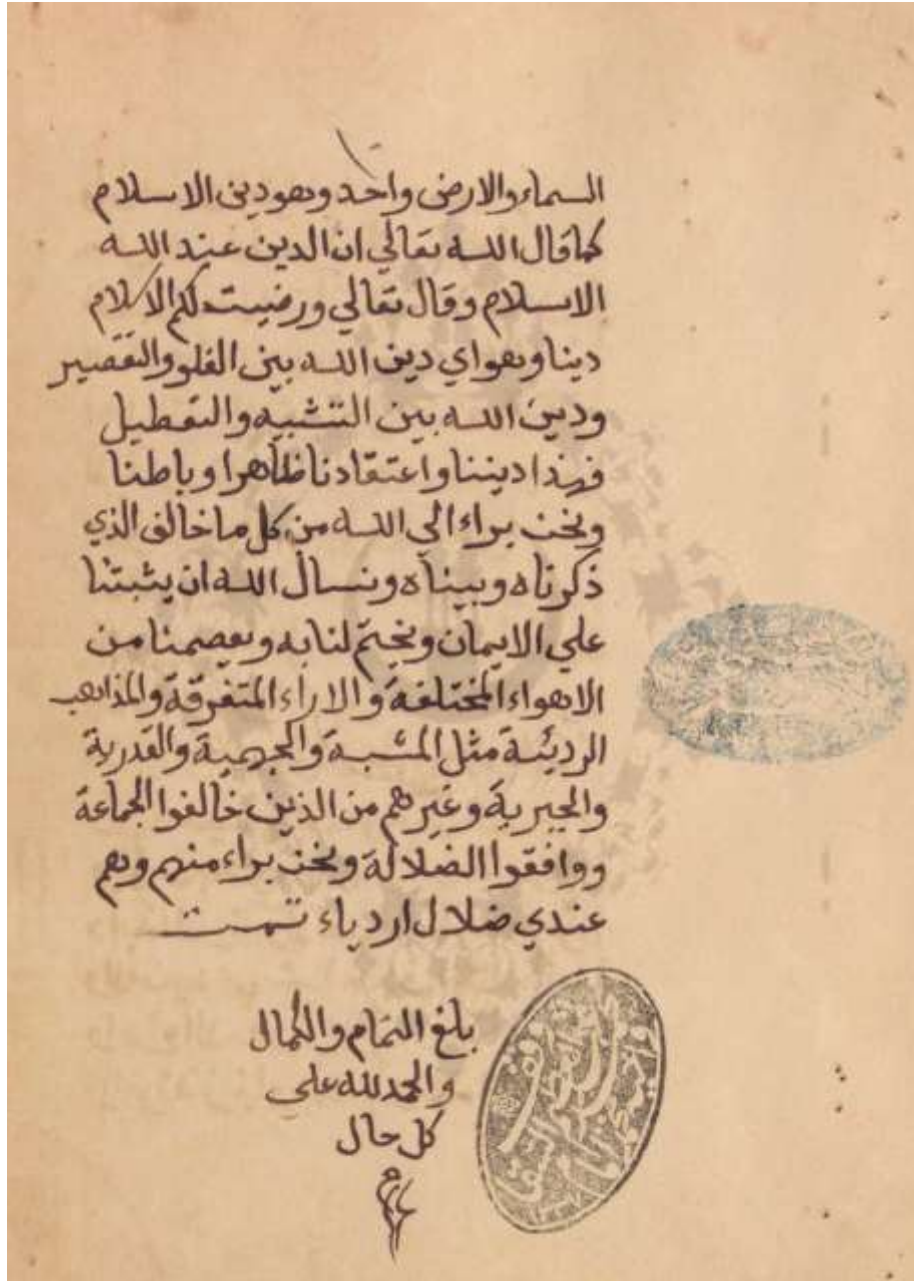 السماء والارض واحد وهو دين الاسلام
كما قال الله تعالي ان الدين عند الله
الاسلام وقال تعالي ورضيت لكم الاسلام
دينا وهو اي دين الله بين الغلو والتقصير
ودين الله بين التشبيه والتعطيل
فهذا ديننا واعتقادنا ظاهرا وباطنا
ونحن براء الي الله من كل ما خالف الذي
ذكرناه وبيناه ونسال الله ان يثبتنا
علي الايمان ويختم لنا به ويعصمنا من
الاهواء المختلفة والاراء المتفرقة والمذاهب
الرديئة مثل المشبهة والجهمية والقدرية
والجبرية وغيرهم من الذين خالفوا الجماعة
ووافقوا الضلالة ونحن براء منهم وهم
عندي ضلال اردياء تمت
بلغ التمام والكمال
والحمد لله علي
كل حال